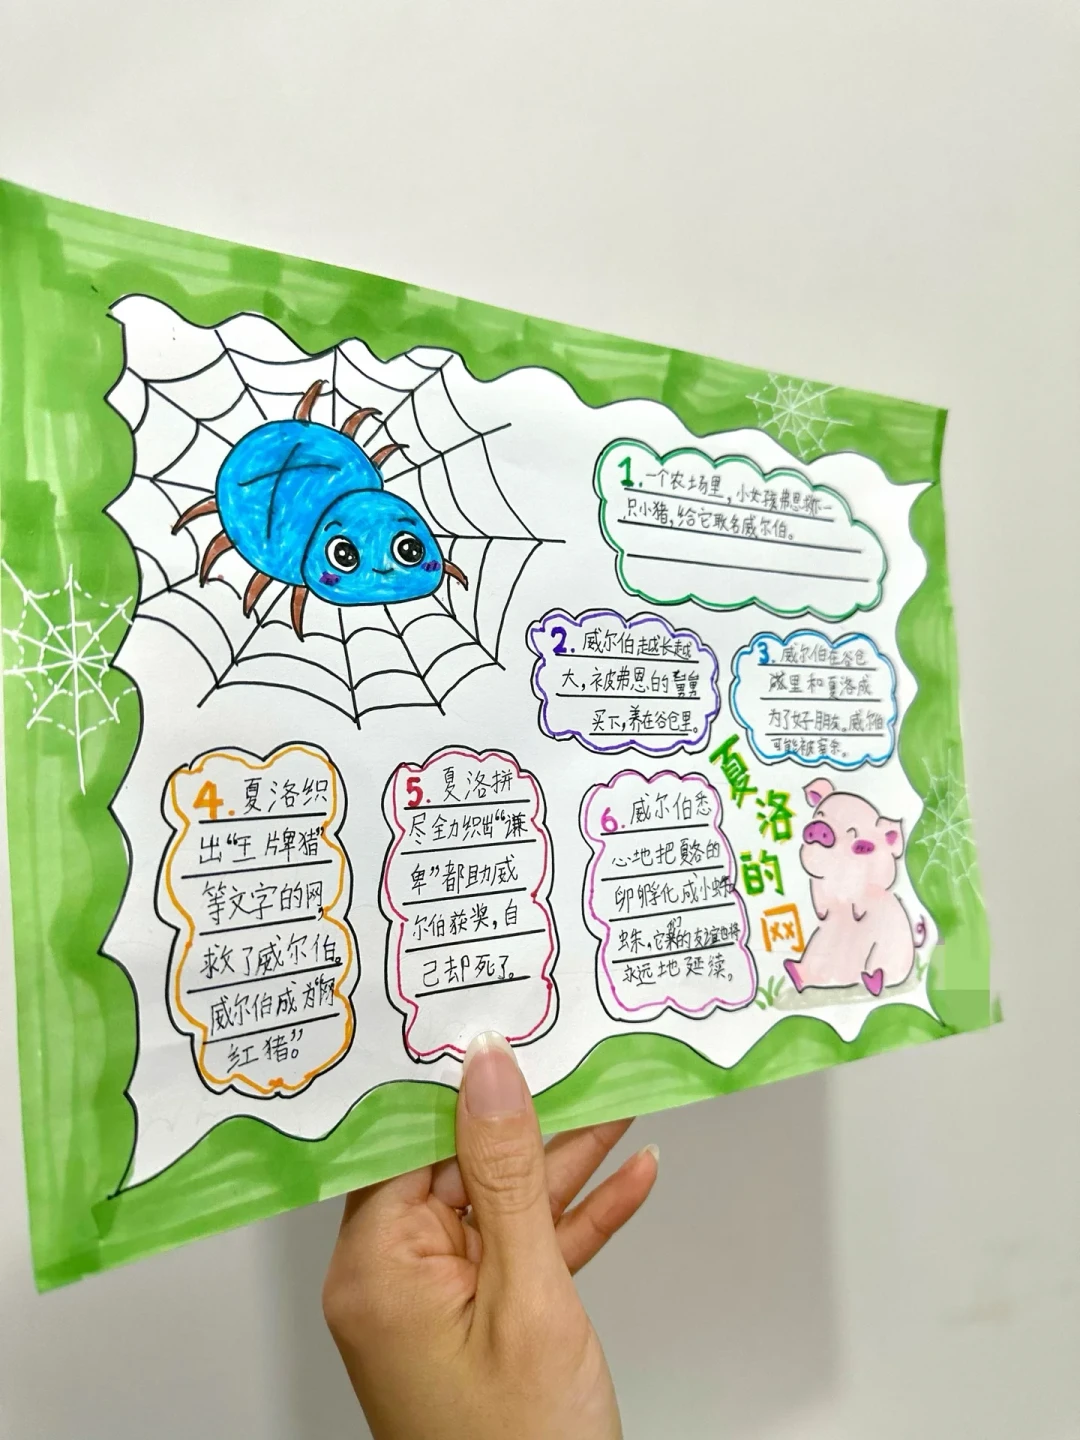 1.一个农场里，小女孩弗恩
只小猪，给它取名威尔伯。
2.威尔伯越长越
大，被弗恩的舅舅
买下，养在谷仓里。
3.威尔伯在谷仓
里和夏洛成
为了好朋友。威尔伯
可能被宰杀。
夏洛的网
4.夏洛织
出“王牌猪”
等文字的网，
救了威尔伯。
威尔伯成为“网
红猪”。
5.夏洛拼
尽全力织出“谦
卑”都助威
尔伯获奖，自
己却死了。
6.威尔伯悉
心地把夏洛的
卵孵化成小蜘
蛛，它们的友谊也将
永远地延续。